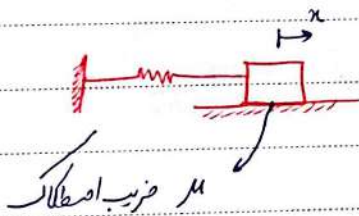 x
μ ضریب اصطکاک